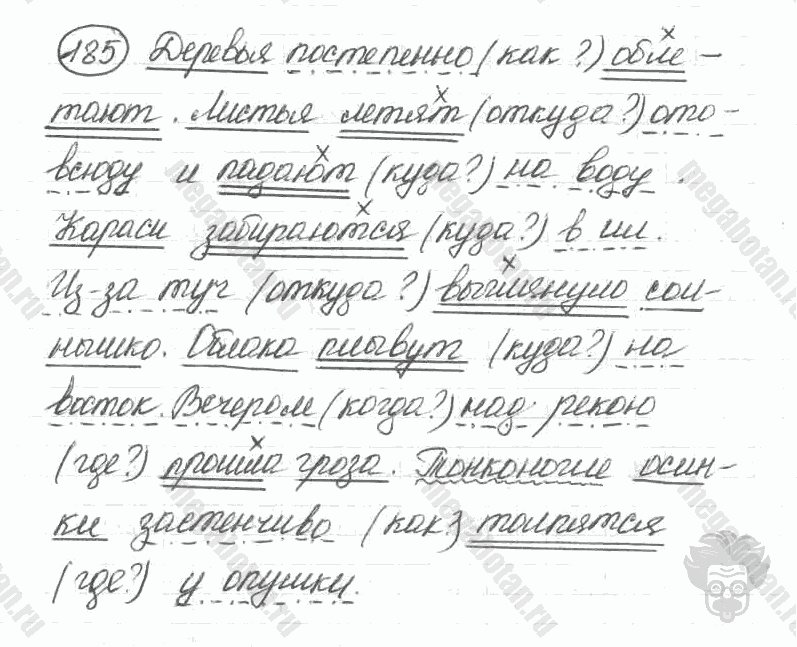 185 Деревья постепенно (как?) обле-
тают. Листья летят (откуда?) ото-
всюду и падают (куда?) на воду.
Караси забираются (куда?) в ил.
Из-за туч (откуда?) выглянуло сол-
нышко. Облака плывут (куда?) на
восток. Вечером (когда?) над рекою
(где?) прошла гроза. Тонконогие осин-
ки застенчиво (как?) толпятся
(где?) у опушки.
megabotan.ru